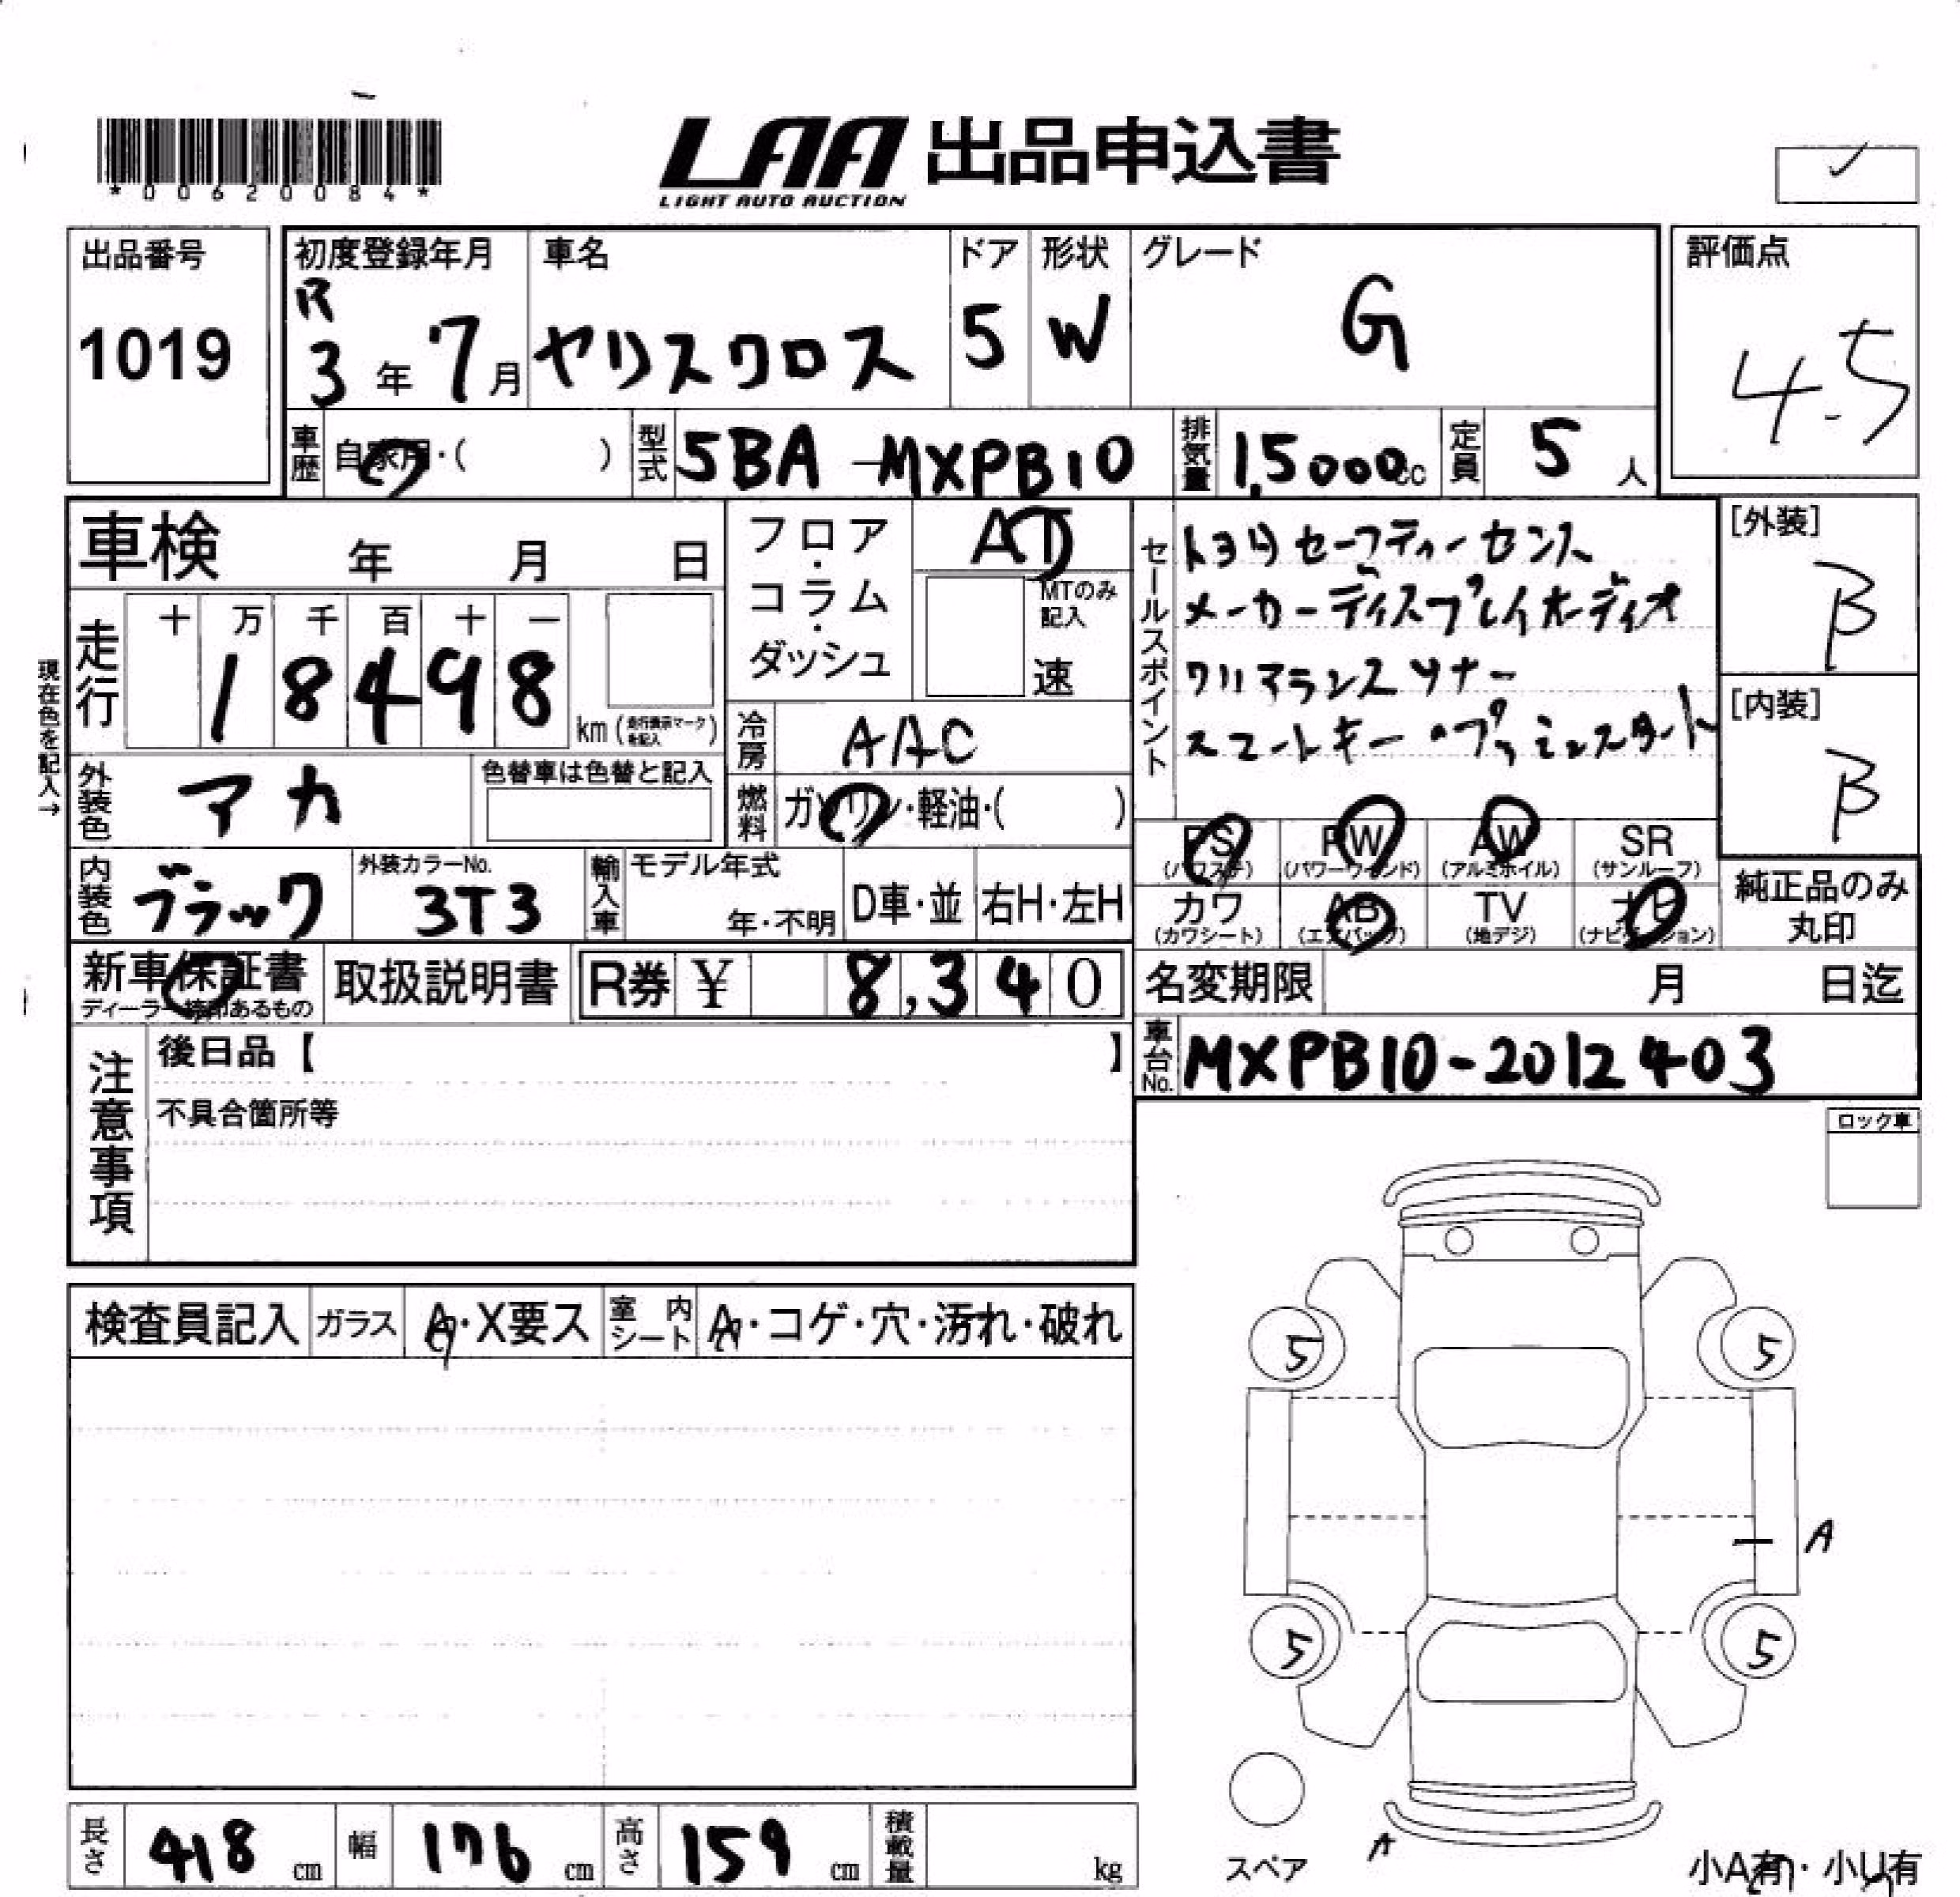 *00620084*
LAA 出品申込書
LIGHT AUTO AUCTION
出品番号
1019
初度登録年月
R
3年 7月
車名
ヤリスクロス
ドア
5
形状
W
グレード
G
評価点
4.5
車歴
自家用・( )
型式
5BA-MXPB10
排気量
1,5000cc
定員
5人
車検 年 月 日
走行
十 万 千 百 十 一
18498
km(走行表示マークを記入)
現在色を記入→
フロア・コラム・ダッシュ
AT
MTのみ記入
速
冷房
AAC
燃料
ガソリン・軽油・( )
セールスポイント
トヨタセーフティーセンス
メーカーディスプレイオーディオ
クリアランスソナー
スマートキー・プッシュスタート
[外装]
B
[内装]
B
外装色
アカ
色替車は色替と記入
内装色
ブラック
外装カラーNo.
3T3
輸入車
モデル年式
年・不明
D車・並
右H・左H
PS
(パワステ)
PW
(パワーウインド)
AW
(アルミホイル)
SR
(サンルーフ)
カワ
(カワシート)
AB
(エアバック)
TV
(地デジ)
ナビ
(ナビゲーション)
純正品のみ
丸印
新車保証書
ディーラー捺印あるもの
取扱説明書
R券 ¥ 8,340
名変期限 月 日迄
車台No.
MXPB10-2012403
注意事項
後日品【 】
不具合箇所等
ロック車
検査員記入
ガラス
A・X要ス
室内シート
A・コゲ・穴・汚れ・破れ
5
5
A
5
5
A
スペア
小A有・小U有
長さ
418cm
幅
176cm
高さ
159cm
積載量
kg